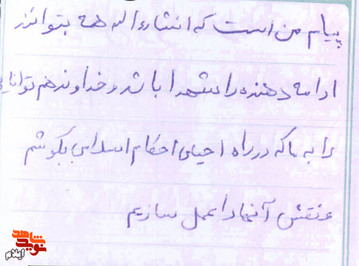 پیام من است که انشاءالله همه بتوانند
ادامه دهنده راه شهدا باشد و خداوند هم توانایی
را به ما که در راه احیای احکام اسلامی بکوشیم
آنها را عمل سازیم
نوید شاهد
ایلام